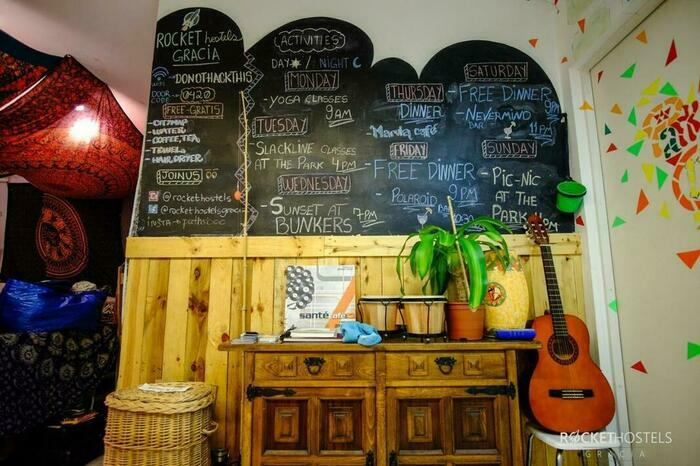 ROCKET hostels
GRACIA
-DONOTHACKTHIS
DOOR CODE 0420
FREE-GRATIS
- CITYMAP
- WATER
- COFFEE, TEA
- TOWELS
- HAIR DRYER
JOIN US
@rockethostels
@rockethostelsgracia
INSTA
ACTIVITIES
DAY / NIGHT
MONDAY
YOGA CLASSES
9AM
TUESDAY
SLACKLINE CLASSES
AT THE PARK 4PM
WEDNESDAY
SUNSET AT
BUNKERS 7PM
THURSDAY
DINNER
Manila café
FRIDAY
- FREE DINNER
9PM
POLAROID
SATURDAY
- FREE DINNER
9PM
- NEVERMIND
BAR 11PM
SUNDAY
- PIC-NIC
AT THE
PARK
santé
ROCKETHOSTELS
GRACIA